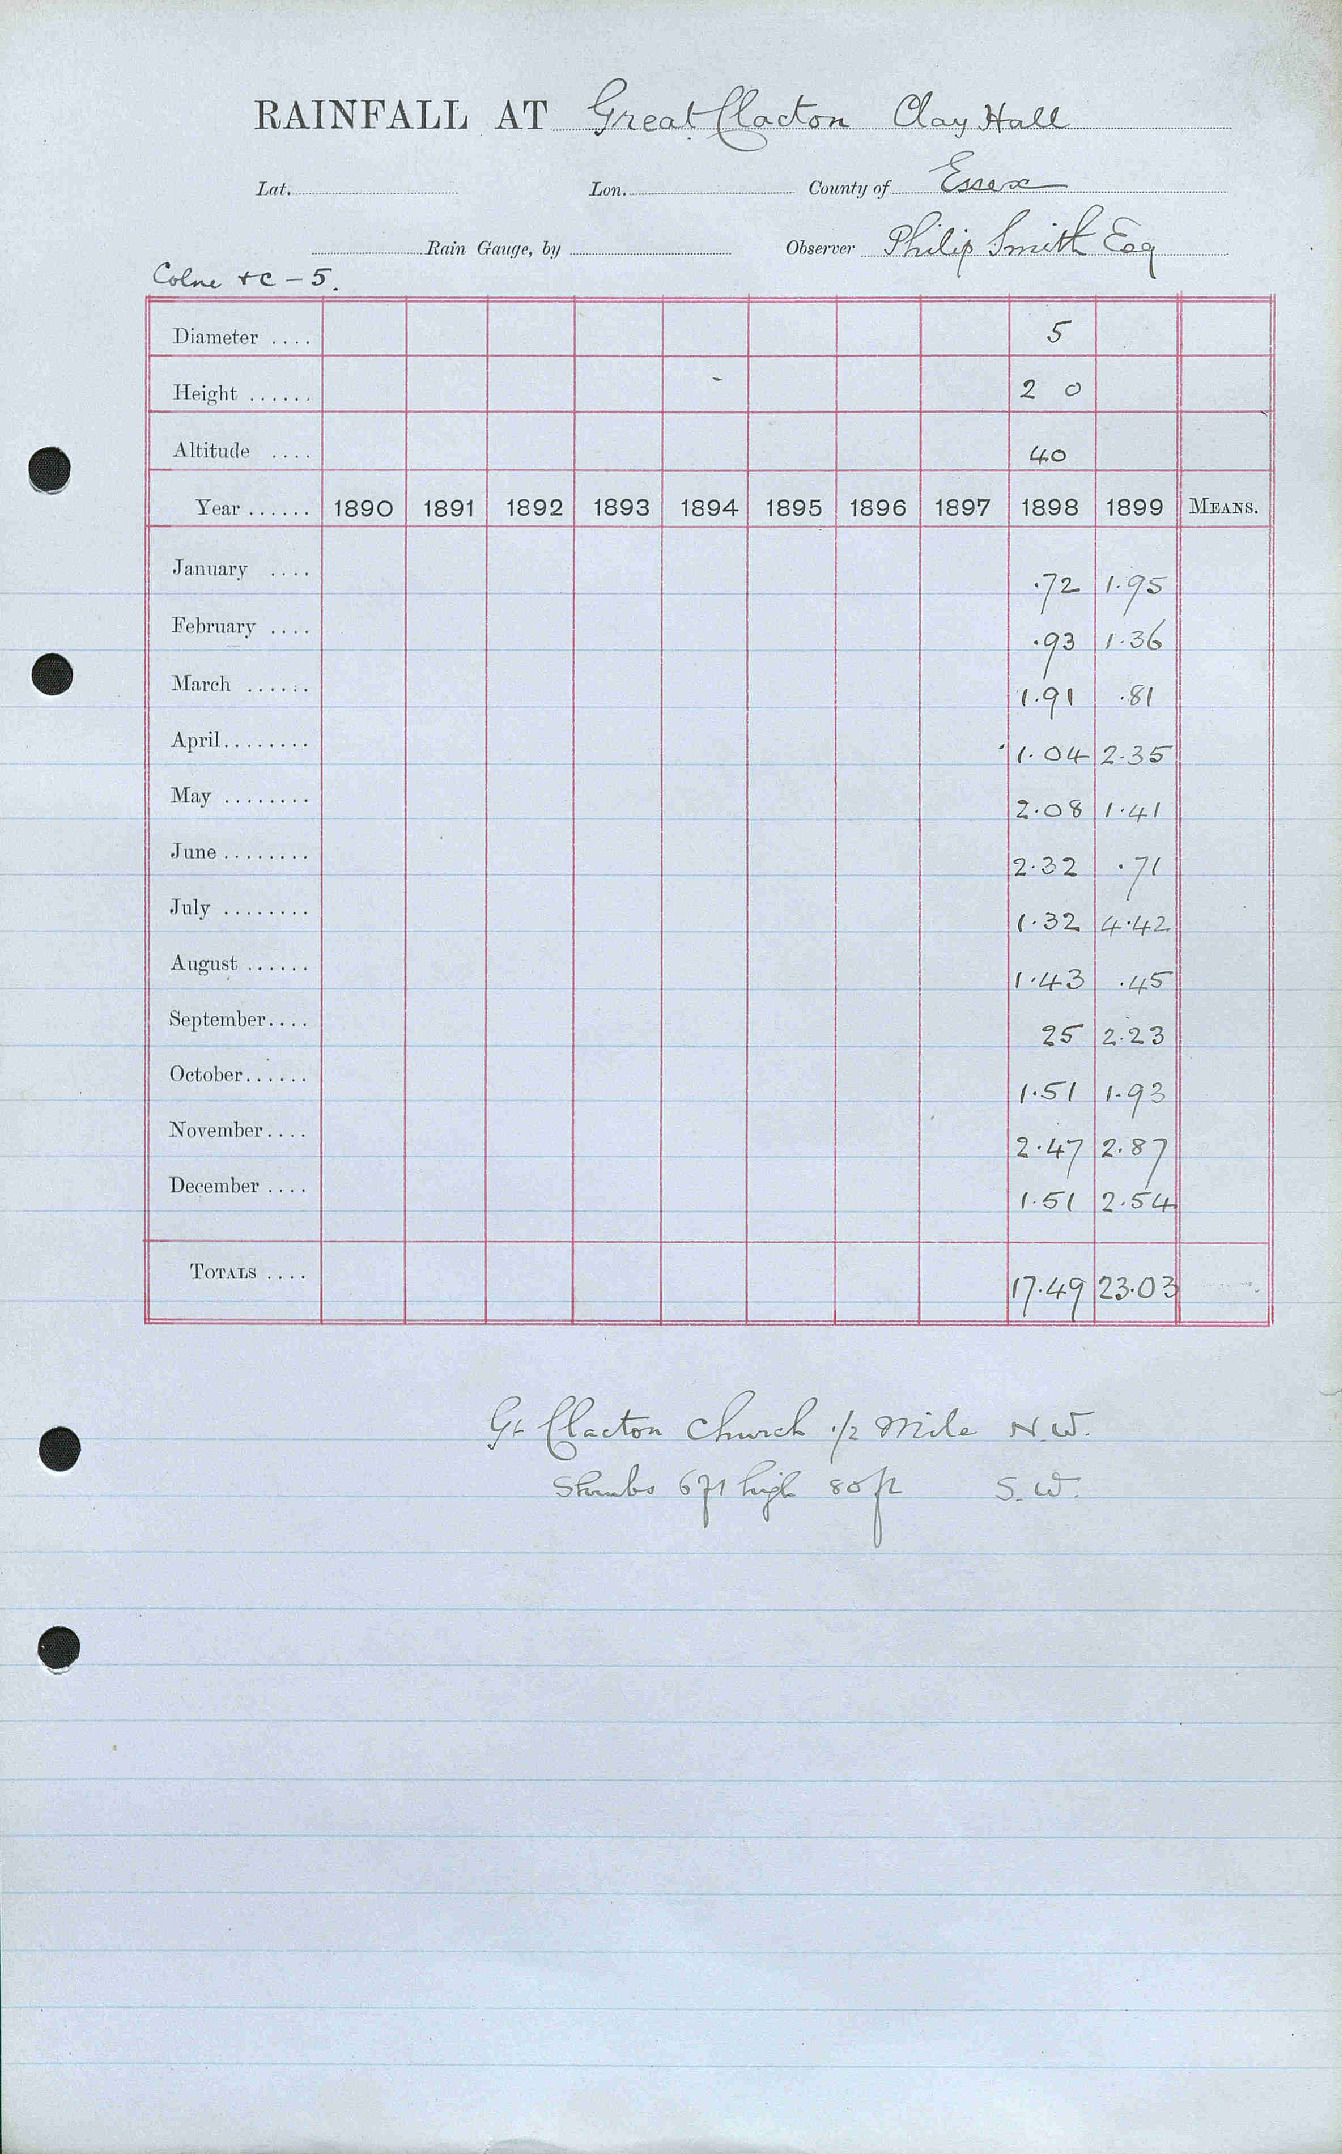 RAINFALL AT Great Clacton Clay Hall
Lat. Lon. County of Essex
Rain Gauge, by Observer Philip Smith Esq
Colne &c - 5.
Diameter .... 5
Height ...... 2 0
Altitude .... 40
Year ...... 1890 1891 1892 1893 1894 1895 1896 1897 1898 1899 MEANS.
January .... .72 1.95
February .... .93 1.36
March ...... 1.91 .81
April........ 1.04 2.35
May ........ 2.08 1.41
June ........ 2.32 .71
July ........ 1.32 4.42
August ...... 1.43 .45
September.... 25 2.23
October...... 1.51 1.93
November.... 2.47 2.87
December .... 1.51 2.54
TOTALS .... 17.49 23.03
Gt Clacton Church 1/2 Mile N.W.
Shrubs 6ft high 80ft S.W.